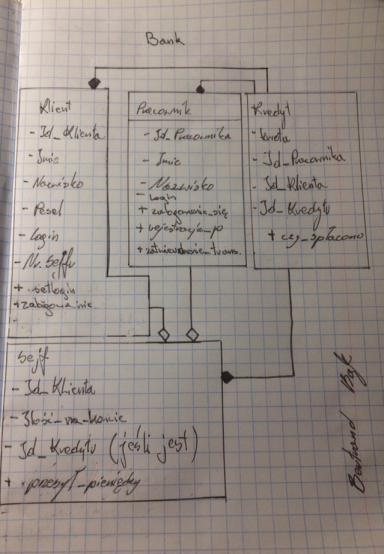 Bank
Klient
- Id_Klienta
- Imię
- Nazwisko
- Pesel
- Login
- Nr. Sejfu
+ setlogin
+ zalogowanie.
Pracownik
- Id_Pracownika
- Imie
- Nazwisko
- Login
+ zalogowania_się
+ rejestracja_po
+ zatwierdzenie_trans.
Kredyt
- kwota
- Id_Pracownika
- Id_Klienta
- Id_Kredytu
+ czy_spłacono
Sejf
- Id_Klienta
- Ilość_na_koncie
- Id_Kredytu (jeśli jest)
+ przesył_pieniędzy
Bąk